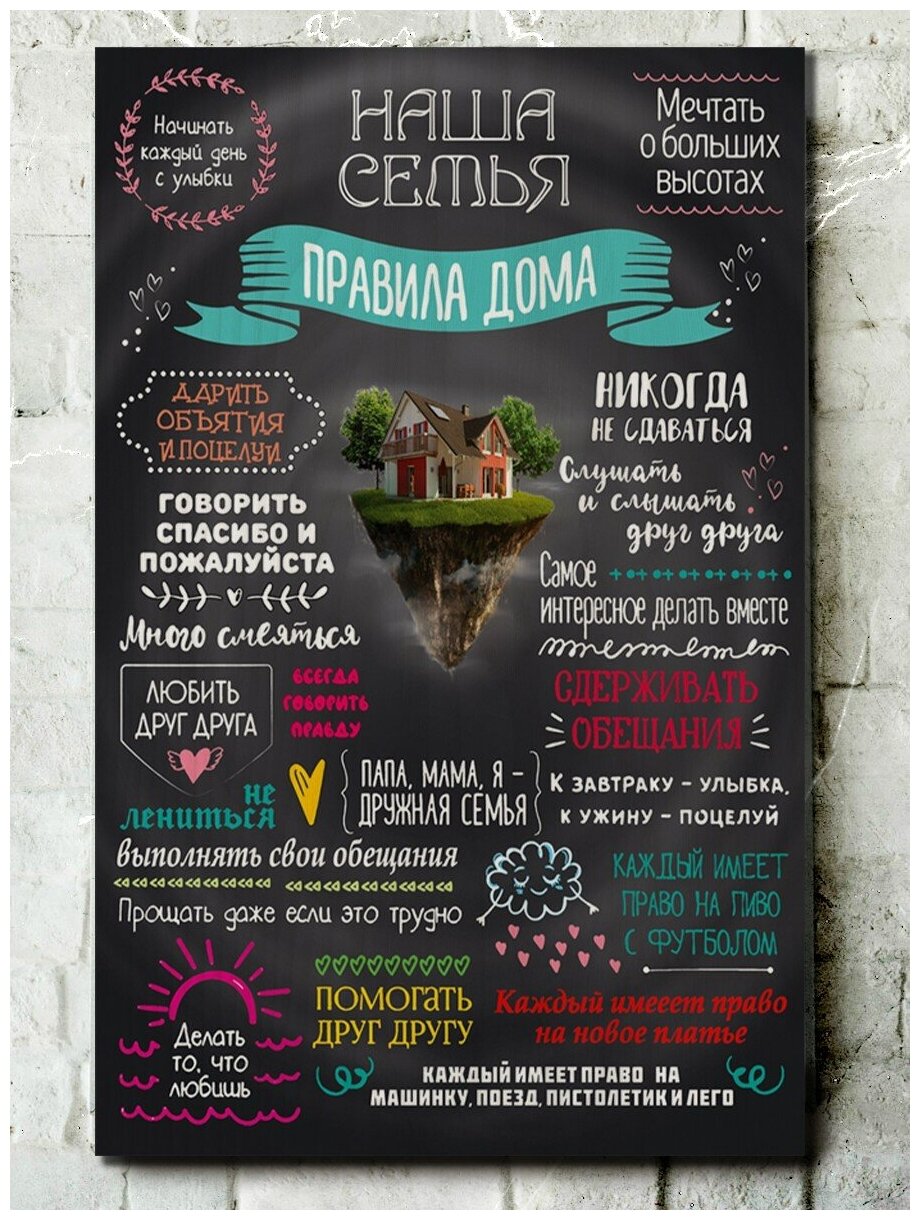 Начинать
каждый день
с улыбки
НАША
СЕМЬЯ
Мечтать
о больших
высотах
ПРАВИЛА ДОМА
ДАРИТЬ
ОБЪЯТИЯ
И ПОЦЕЛУИ
НИКОГДА
НЕ СДАВАТЬСЯ
Слушать
и слышать
друг друга
ГОВОРИТЬ
СПАСИБО И
ПОЖАЛУЙСТА
Самое
интересное делать вместе
Много смеяться
ЛЮБИТЬ
ДРУГ ДРУГА
ВСЕГДА
ГОВОРИТЬ
ПРАВДУ
СДЕРЖИВАТЬ
ОБЕЩАНИЯ
не
лениться
ПАПА, МАМА, Я –
ДРУЖНАЯ СЕМЬЯ
К ЗАВТРАКУ – УЛЫБКА,
К УЖИНУ – ПОЦЕЛУЙ
выполнять свои обещания
Прощать даже если это трудно
КАЖДЫЙ ИМЕЕТ
ПРАВО НА ПИВО
С ФУТБОЛОМ
Делать
то, что
любишь
ПОМОГАТЬ
ДРУГ ДРУГУ
Каждый имееет право
на новое платье
КАЖДЫЙ ИМЕЕТ ПРАВО НА
МАШИНКУ, ПОЕЗД, ПИСТОЛЕТИК И ЛЕГО